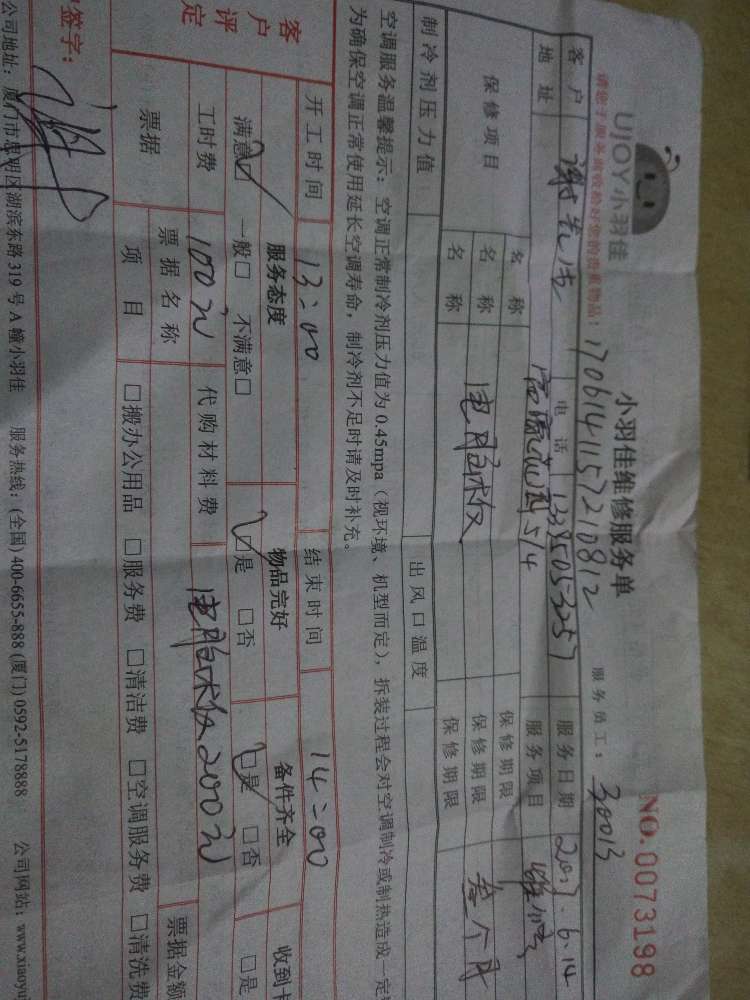 UJOY小羽佳
小羽佳维修服务单
NO.0073198
请您于服务前收检好您的贵重物品:
1706141157210812
服务员工: 30013
客户 谢先生 电话 13385053257 服务日期 2017.6.14
地址 514 服务项目
保修项目 名称 保修期限
名称 电脑板 保修期限 叁个月
名称 保修期限
制冷剂压力值 出风口温度
空调服务温馨提示:空调正常制冷剂压力值为0.45mpa(视环境、机型而定),拆装过程会对空调制冷或制热造成一定
为确保空调正常使用延长空调寿命,制冷剂不足时请及时补充。
开工时间 13:00 结束时间 14:00
客户评定 服务态度 物品完好 备件齐全 收到卡
满意☑ 一般□ 不满意□ ☑是 □否 ☑是 □否 □是
工时费 100元 代购材料费 电脑板200元
票据 票据名称 票据金额
项目 □搬办公用品 □服务费 □清洁费 □空调服务费 □清洗费
签字:
公司地址:厦门市思明区湖滨东路319号A幢小羽佳 服务热线:(全国)400-6655-888 (厦门) 0592-5178888 公司网站:www.xiaoyu